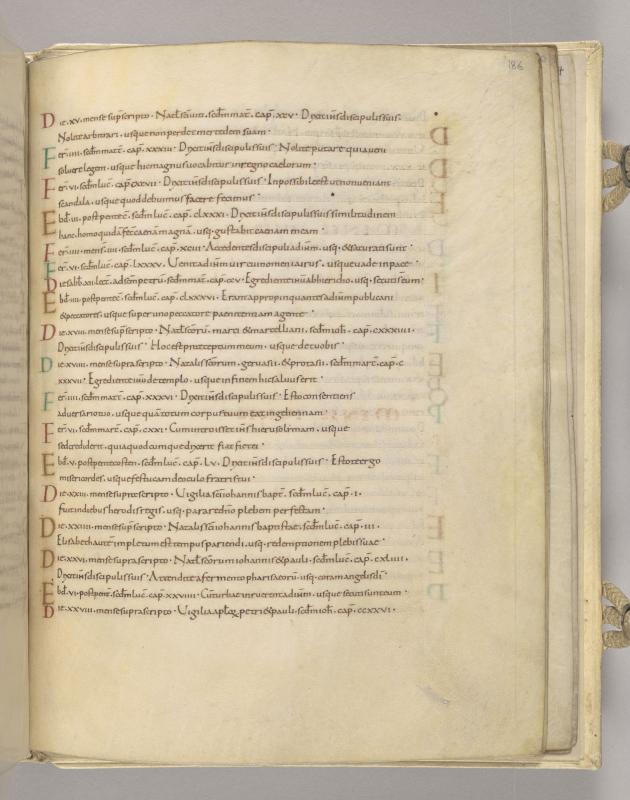 186
Die. xv. mense sup̄scripto · Nat̄l sc̄i viti · sec̄d mat̄ · cap̄ · xcv · Dixit ih̄s discipulis suis ·
Nolite arbitrari · usque non perdet mercedem suam ·
Fer̄ · iiii · sec̄d mat̄t · cap̄ · xxxiii · Dixit ih̄s discipulis suis · Nolite putare quia veni
solvere legem · usque hic magnus vocabitur in regno caelorum ·
Fer̄ · vi · sec̄d luc̄ · cap̄ · Dixit ih̄s discipulis suis · Inpossibile est ut non veniant
scandala · usque quod debuimus facere fecimus ·
Ebd̄ · iii · post pentec̄ · sec̄d luc̄ · cap̄ · clxxxi · Dixit ih̄s discipulis suis similitudinem
hanc · homo quidā fec̄ caenā magnā · usq; gustabit caenam meam ·
Fer̄ · iiii · mens̄ · iiii · sec̄d luc̄ · cap̄ · xciii · Accedentes discipuli ad ih̄m · usq; & securati sunt ·
Fer̄ · vi · sec̄d luc̄ · cap̄ · lxxxv · Venit ad ih̄m vir cui nomen iairus · usque vade in pace
Die sabb̄ · ad sc̄m petrū · sec̄d mat̄t · cap̄ · ccv · Egrediente ih̄u ab hiericho · usq; secuti s̄ eum ·
Ebd̄ · iiii · post pentec̄ · sec̄d luc̄ · cap̄ · clxxxvi · Erant appropinquantes ad ih̄m publicani
& peccatores · usque super uno peccatore paenitentiam agente
Die · xviii · mense sup̄scripto · Nat̄l sc̄oru · marci & marcelliani · sec̄d ioh̄ · cap̄ · cxxxviiii ·
Dixit ih̄s discipulis suis · Hoc est praeceptum meum · usque det vobis ·
Die · xviiii · mense suprascripto · Natalis sc̄orum · gervasii · & protasii · sec̄d marc̄ · cap̄ · c
xxxvii · Egrediente ih̄o de templo · usque in finem hic salvus erit ·
Fer̄ · iiii · sec̄d mat̄t · cap̄ · xxxvi · Dixit ih̄s discipulis suis · Esto consentiens
adversario tuo · usque quā totum corpus tuum eat in gehennam ·
Fer̄ · vi · sec̄d marc̄ · cap̄ · cxxi · Cum introisset ih̄s hierusolimam · usque
sed crediderit · quia quodcumque dixerit fiat fiet ei ·
Ebd̄ · v · post pentecosten · sec̄d luc̄ · cap̄ · lv · Dixit ih̄s discipulis suis · Estote ergo
misericordes · usque festucam de oculo fratris tui ·
Die · xxiii · mense suprascripto · Vigilia sc̄i iohannis bapt̄ · sec̄d luc̄ · cap̄ · i ·
Fuit in diebus herodis regis · usq; parare dn̄o plebem perfectam ·
Die · xxiiii · mense sup̄scripto · Natalis sc̄i iohannis baptistae · sec̄d luc̄ · cap̄ · iii ·
Elisabeth autē impletum est tempus pariendi · usq; redemptionem plebis suae ·
Die · xxvi · mense suprascripto · Nat̄l sc̄orum iohannis & pauli · sec̄d luc̄ · cap̄ · cxliiii ·
Dixit ih̄s discipulis suis · Attendite a fermento pharisaeorū · usq; coram angelis dī ·
Ebd̄ · vi · post pent̄ · sec̄d luc̄ · cap̄ · xxviiii · Cū turbae inruerent ad ih̄m · usque secuti sunt eum ·
Die · xxviii · mense suprascripto · Vigilia ap̄lorum petri & pauli · sec̄d ioh̄ · cap̄ · ccxxvi ·